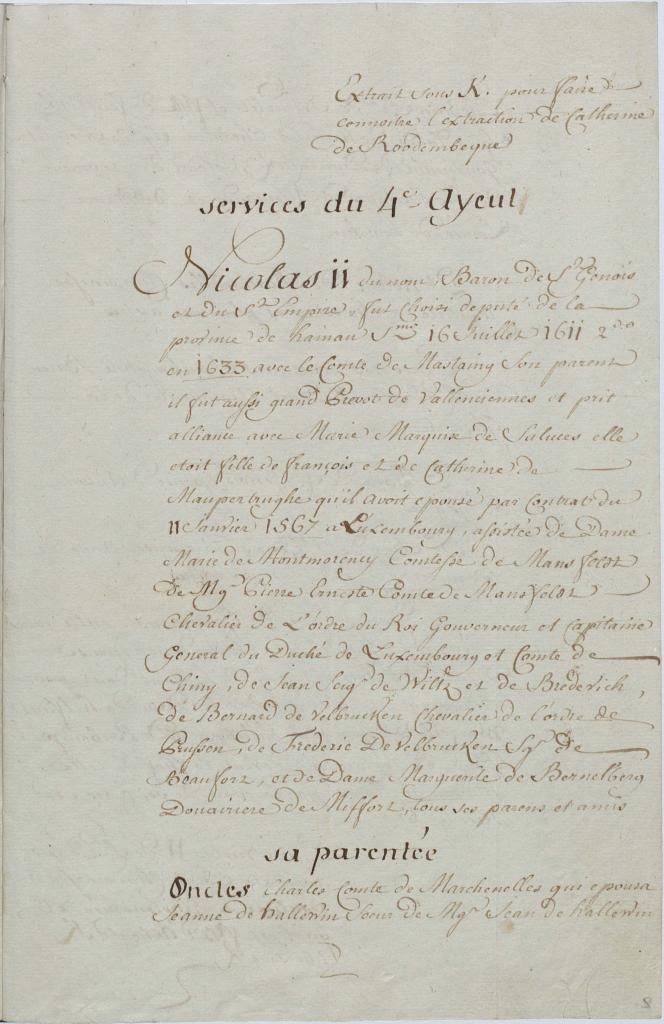 Extrait sous K. pour faire
connoitre l'extraction de Catherine
de Roodembeque
services du 4e Ayeul
Nicolas II du nom, Baron de St Genois
et du St Empire, fut choisi deputé de la
province de hainau 16 Juillet 1611 2do
en 1633 avec le Comte de Mastaing son parent
il fut aussi grand Prevot de Vallenciennes et prit
alliance avec Marie Marquise de Saluces elle
etoit fille de françois et de Catherine de
qu'il avoit epousé par Contrat du
11 Janvier 1567 a Luxembourg, assistée de Dame
Marie de Montmorency Comtesse de Mansfeldt
de Mgr Pierre Erneste Comte de Mansfeldt
Chevalier de L'ordre du Roi Gouverneur et Capitaine
General du Duché de Luxembourg et Comté de
Chiny, de Jean Seigr de Wiltz et de Brederich,
de Bernard de Velbrucken Chevalier de l'ordre de
Prussen, de Fréderic De Velbrucken Sgr de
Beaufort, et de Dame Marguerite de Bernelberg
Douairiere de Miffort, tous ses parens et amis
sa parentée
Oncles Charles Comte de Marchenelles qui epousa
Jeanne de hallewin Soeur de Mgr Jean de hallewin
8